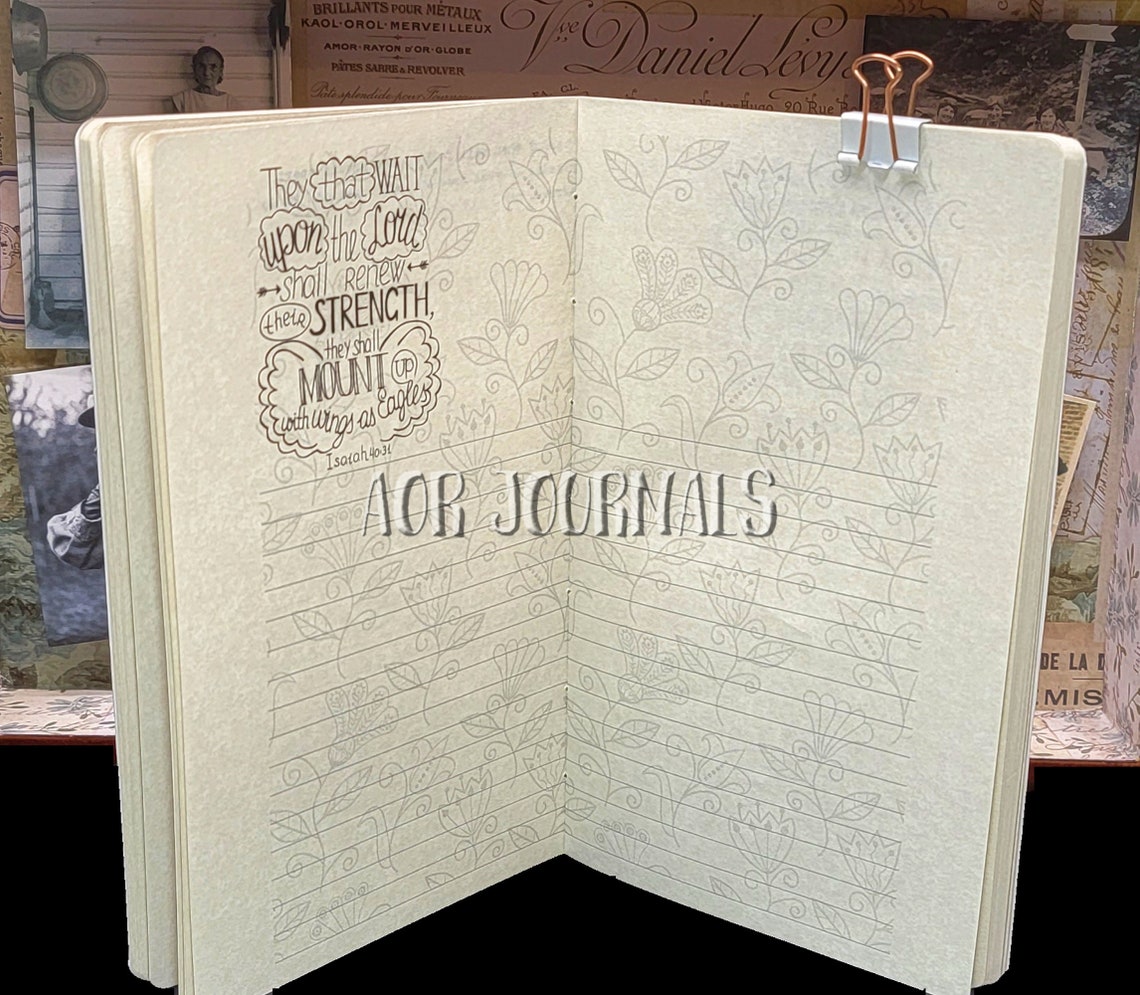 BRILLANTS POUR MÉTAUX
KAOL·OROL·MERVEILLEUX
AMOR·RAYON D'OR·GLOBE
PÂTES SABRE & REVOLVER
Pâte splendide pour
Vve Daniel Lévy
20 Rue
They that WAIT
upon the Lord
shall renew
their STRENGTH,
they shall
MOUNT up
with wings as Eagles
Isaiah 40:31
AOR JOURNALS
DE LA